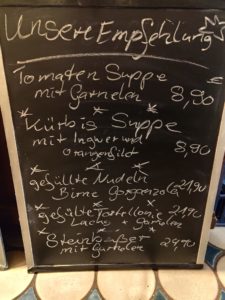 Unsere Empfehlung
Tomaten Suppe €
mit Garnelen 8,90
Kürbis Suppe
mit Ingwer und 8,90
Orangenfilet
gefüllte Nudeln
Birne Gorgonzola 21,90
gefüllte 21,90
Lachs + Garnelen
mit Garnelen 24,90